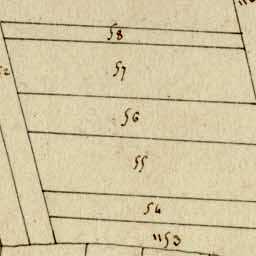 58
57
56
55
54
1153